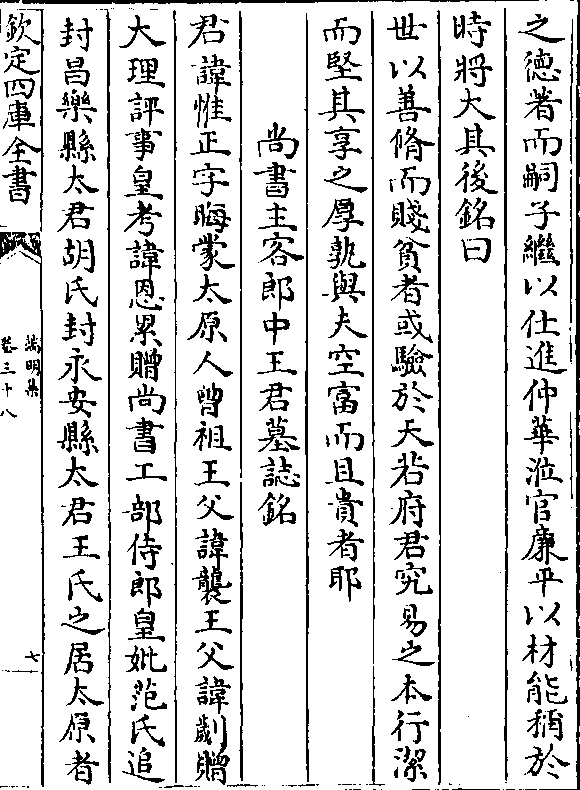 之徳著而嗣子繼以仕進仲華涖官廉平以材能稱於
時將大其後銘曰
世以善脩而賤貧者或驗於天若府君究易之本行潔
而堅其享之厚孰與夫空富而且貴者耶
尚書主客郎中王君墓誌銘
君諱惟正字晦蒙太原人曾祖王父諱襲王父諱劌贈
大理評事皇考諱恩累贈尚書工部侍郎皇妣范氏追
封昌樂縣太君胡氏封永安縣太君王氏之居太原者
欽定四庫全書
端明集
卷三十八
七